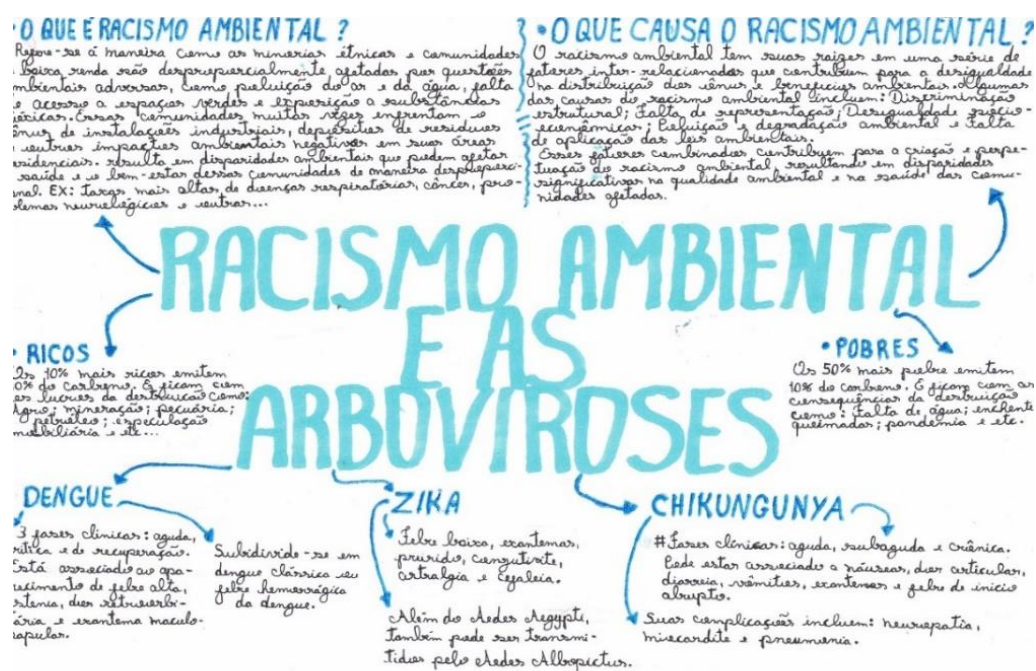 • O QUE É RACISMO AMBIENTAL ?
Refere-se á maneira como as minorias étnicas e comunidades
baixa renda são desproporcionalmente afetadas por questões
mbientais adversas, como poluição do ar e da água, falta
e acesso a espaços verdes e exposição a substâncias
óxicas. Essas comunidades muitas vezes enfrentam o
ônus de instalações industriais, depósitos de resíduos
e outros impactos ambientais negativos em suas áreas
esidenciais. resulta em disparidades ambientais que podem afetar
saúde e o bem-estar dessas comunidades de maneira desproporci-
onal. EX: taxas mais altas de doenças respiratórias, câncer, pro-
blemas neurológicos e outras...
• O QUE CAUSA O RACISMO AMBIENTAL ?
O racismo ambiental tem suas raízes em uma série de
fatores inter-relacionados que contribuem para a desigualdade
na distribuição dos ônus e benefícios ambientais. Algumas
das causas do racismo ambiental incluem: Discriminação
estrutural; Falta de representação; Desigualdade sócio
econômicas; Poluição e degradação ambiental e Falta
de aplicação das leis ambientais.
Esses fatores combinados contribuem para a criação e perpe-
tuação do racismo ambiental, resultando em disparidades
significativas na qualidade ambiental e na saúde das comu-
nidades afetadas.
RACISMO AMBIENTAL
E AS
ARBOVIROSES
• RICOS
Os 10% mais ricos emitem
0% do carbono. E ficam com
os lucros da destruição como:
Agro; mineração; pecuária;
petróleo; especulação
imobiliária e etc...
• POBRES
Os 50% mais pobre emitem
10% do carbono. E ficam com as
consequências da destruição
como: falta de água; enchente
queimadas; pandemia e etc.
DENGUE
3 fases clínicas: aguda,
rítica e de recuperação.
Está associado ao apa-
recimento de febre alta,
astenia, dor retroorbi-
tária e exantema maculo-
papular.
Subdivide-se em
dengue clássica ou
febre hemorrágica
da dengue.
ZIKA
Febre baixa, exantemas,
prurido, conjutivite,
artralgia e cefaleia.
Além do Aedes Aegypti,
também pode ser transmi-
tidos pelo Aedes Albopictus.
CHIKUNGUNYA
# Fases clínicas: aguda, subaguda e crônica.
Pode estar associado a náuseas, dor articular,
diarreia, vômitos, exantemas e febre de inicio
abrupto.
Suas complicações incluem: neuropatia,
miocardite e pneumonia.